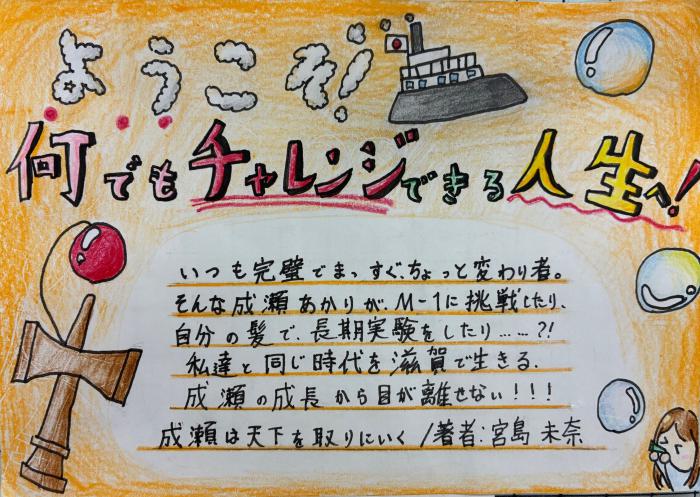 ようこそ!
何でもチャレンジできる人生へ!
いつも完璧でまっすぐ、ちょっと変わり者。
そんな成瀬あかりが、M-1に挑戦したり、
自分の髪で、長期実験をしたり……?!
私達と同じ時代を滋賀で生きる、
成瀬の成長から目が離せない!!!
成瀬は天下を取りにいく/著者:宮島 未奈